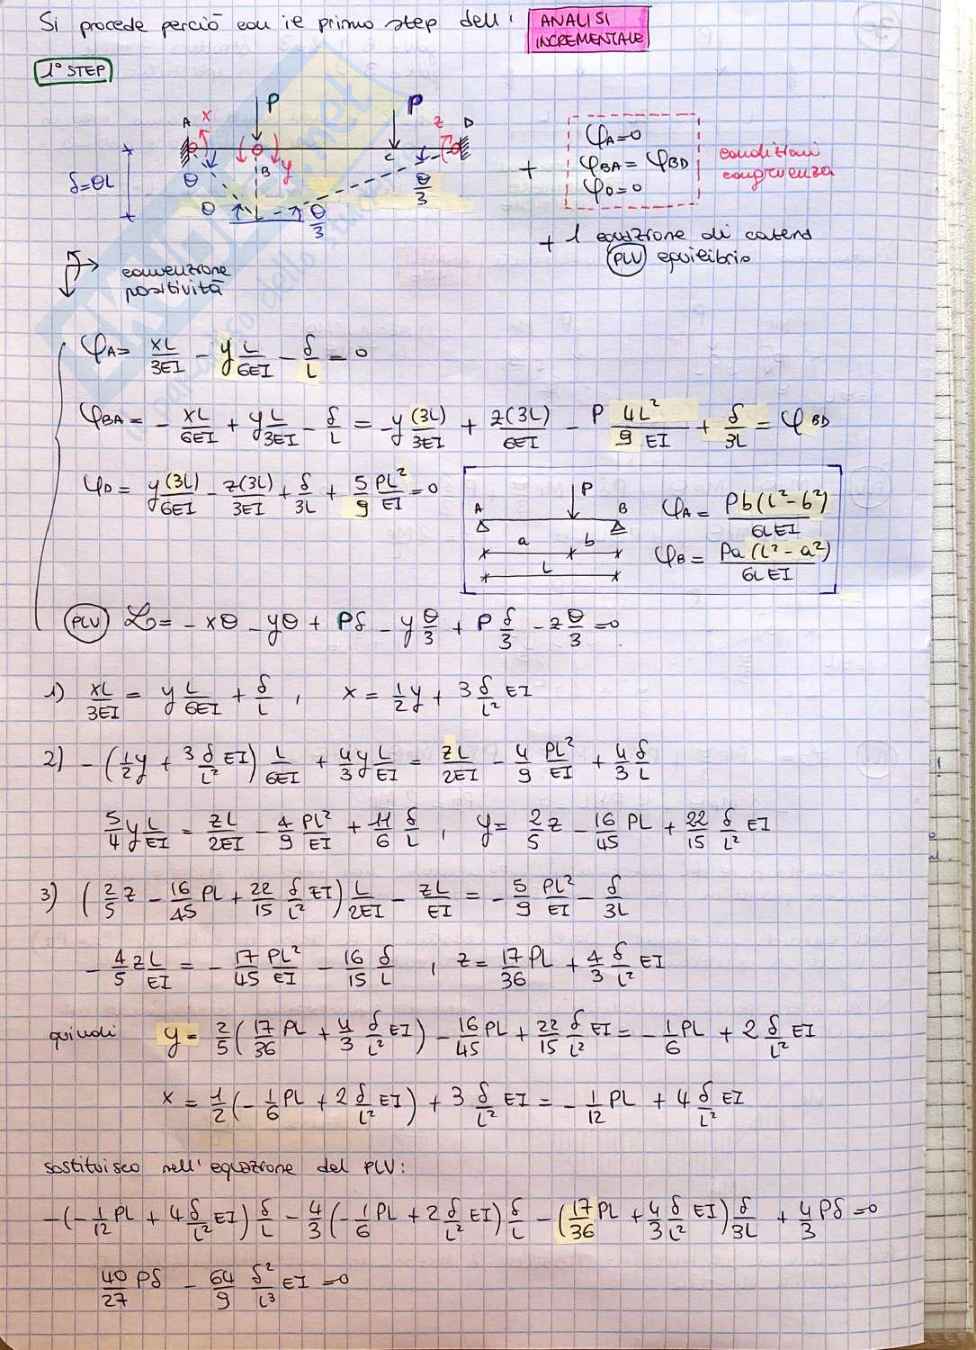 Si procede perciò con il primo step dell' ANALISI INCREMENTALE
1° STEP
A x P P z D
B y C
δ=θL θ θ θ/3 θ/3
+ φA=0
φBA = φBD
φD=0
condizioni congruenza
+ 1 equazione di catena
PLV equilibrio
convenzione positività
φA= xL/3EI - y L/6EI - δ/L = 0
φBA = - xL/6EI + y L/3EI - δ/L = -y (3L)/3EI + z(3L)/6EI - P 4L²/9 EI + δ/3L = φBD
φD = y(3L)/6EI - z(3L)/3EI + δ/3L + 5/9 PL²/EI = 0
A P B
a b
L
φA = Pb(L²-b²)/6LEI
φB = Pa(L²-a²)/6LEI
PLV L = - xθ - yθ + Pδ - y θ/3 + P δ/3 - z θ/3 = 0
1) xL/3EI = y L/6EI + δ/L , x = 1/2 y + 3 δ/L² EI
2) - (1/2 y + 3 δ/L² EI) L/6EI + 4/3 y L/EI = zL/2EI - 4/9 PL²/EI + 4/3 δ/L
5/4 y L/EI = zL/2EI - 4/9 PL²/EI + 11/6 δ/L , y = 2/5 z - 16/45 PL + 22/15 δ/L² EI
3) (2/5 z - 16/45 PL + 22/15 δ/L² EI) L/2EI - zL/EI = - 5/9 PL²/EI - δ/3L
- 4/5 z L/EI = - 17/45 PL²/EI - 16/15 δ/L , z = 17/36 PL + 4/3 δ/L² EI
quindi y = 2/5 (17/36 PL + 4/3 δ/L² EI) - 16/45 PL + 22/15 δ/L² EI = - 1/6 PL + 2 δ/L² EI
x = 1/2 (- 1/6 PL + 2 δ/L² EI) + 3 δ/L² EI = - 1/12 PL + 4 δ/L² EI
sostituisco nell'equazione del PLV:
-(- 1/12 PL + 4 δ/L² EI) δ/L - 4/3 (- 1/6 PL + 2 δ/L² EI) δ/L - (17/36 PL + 4/3 δ/L² EI) δ/3L + 4/3 Pδ = 0
40/27 Pδ - 64/9 δ²/L³ EI = 0